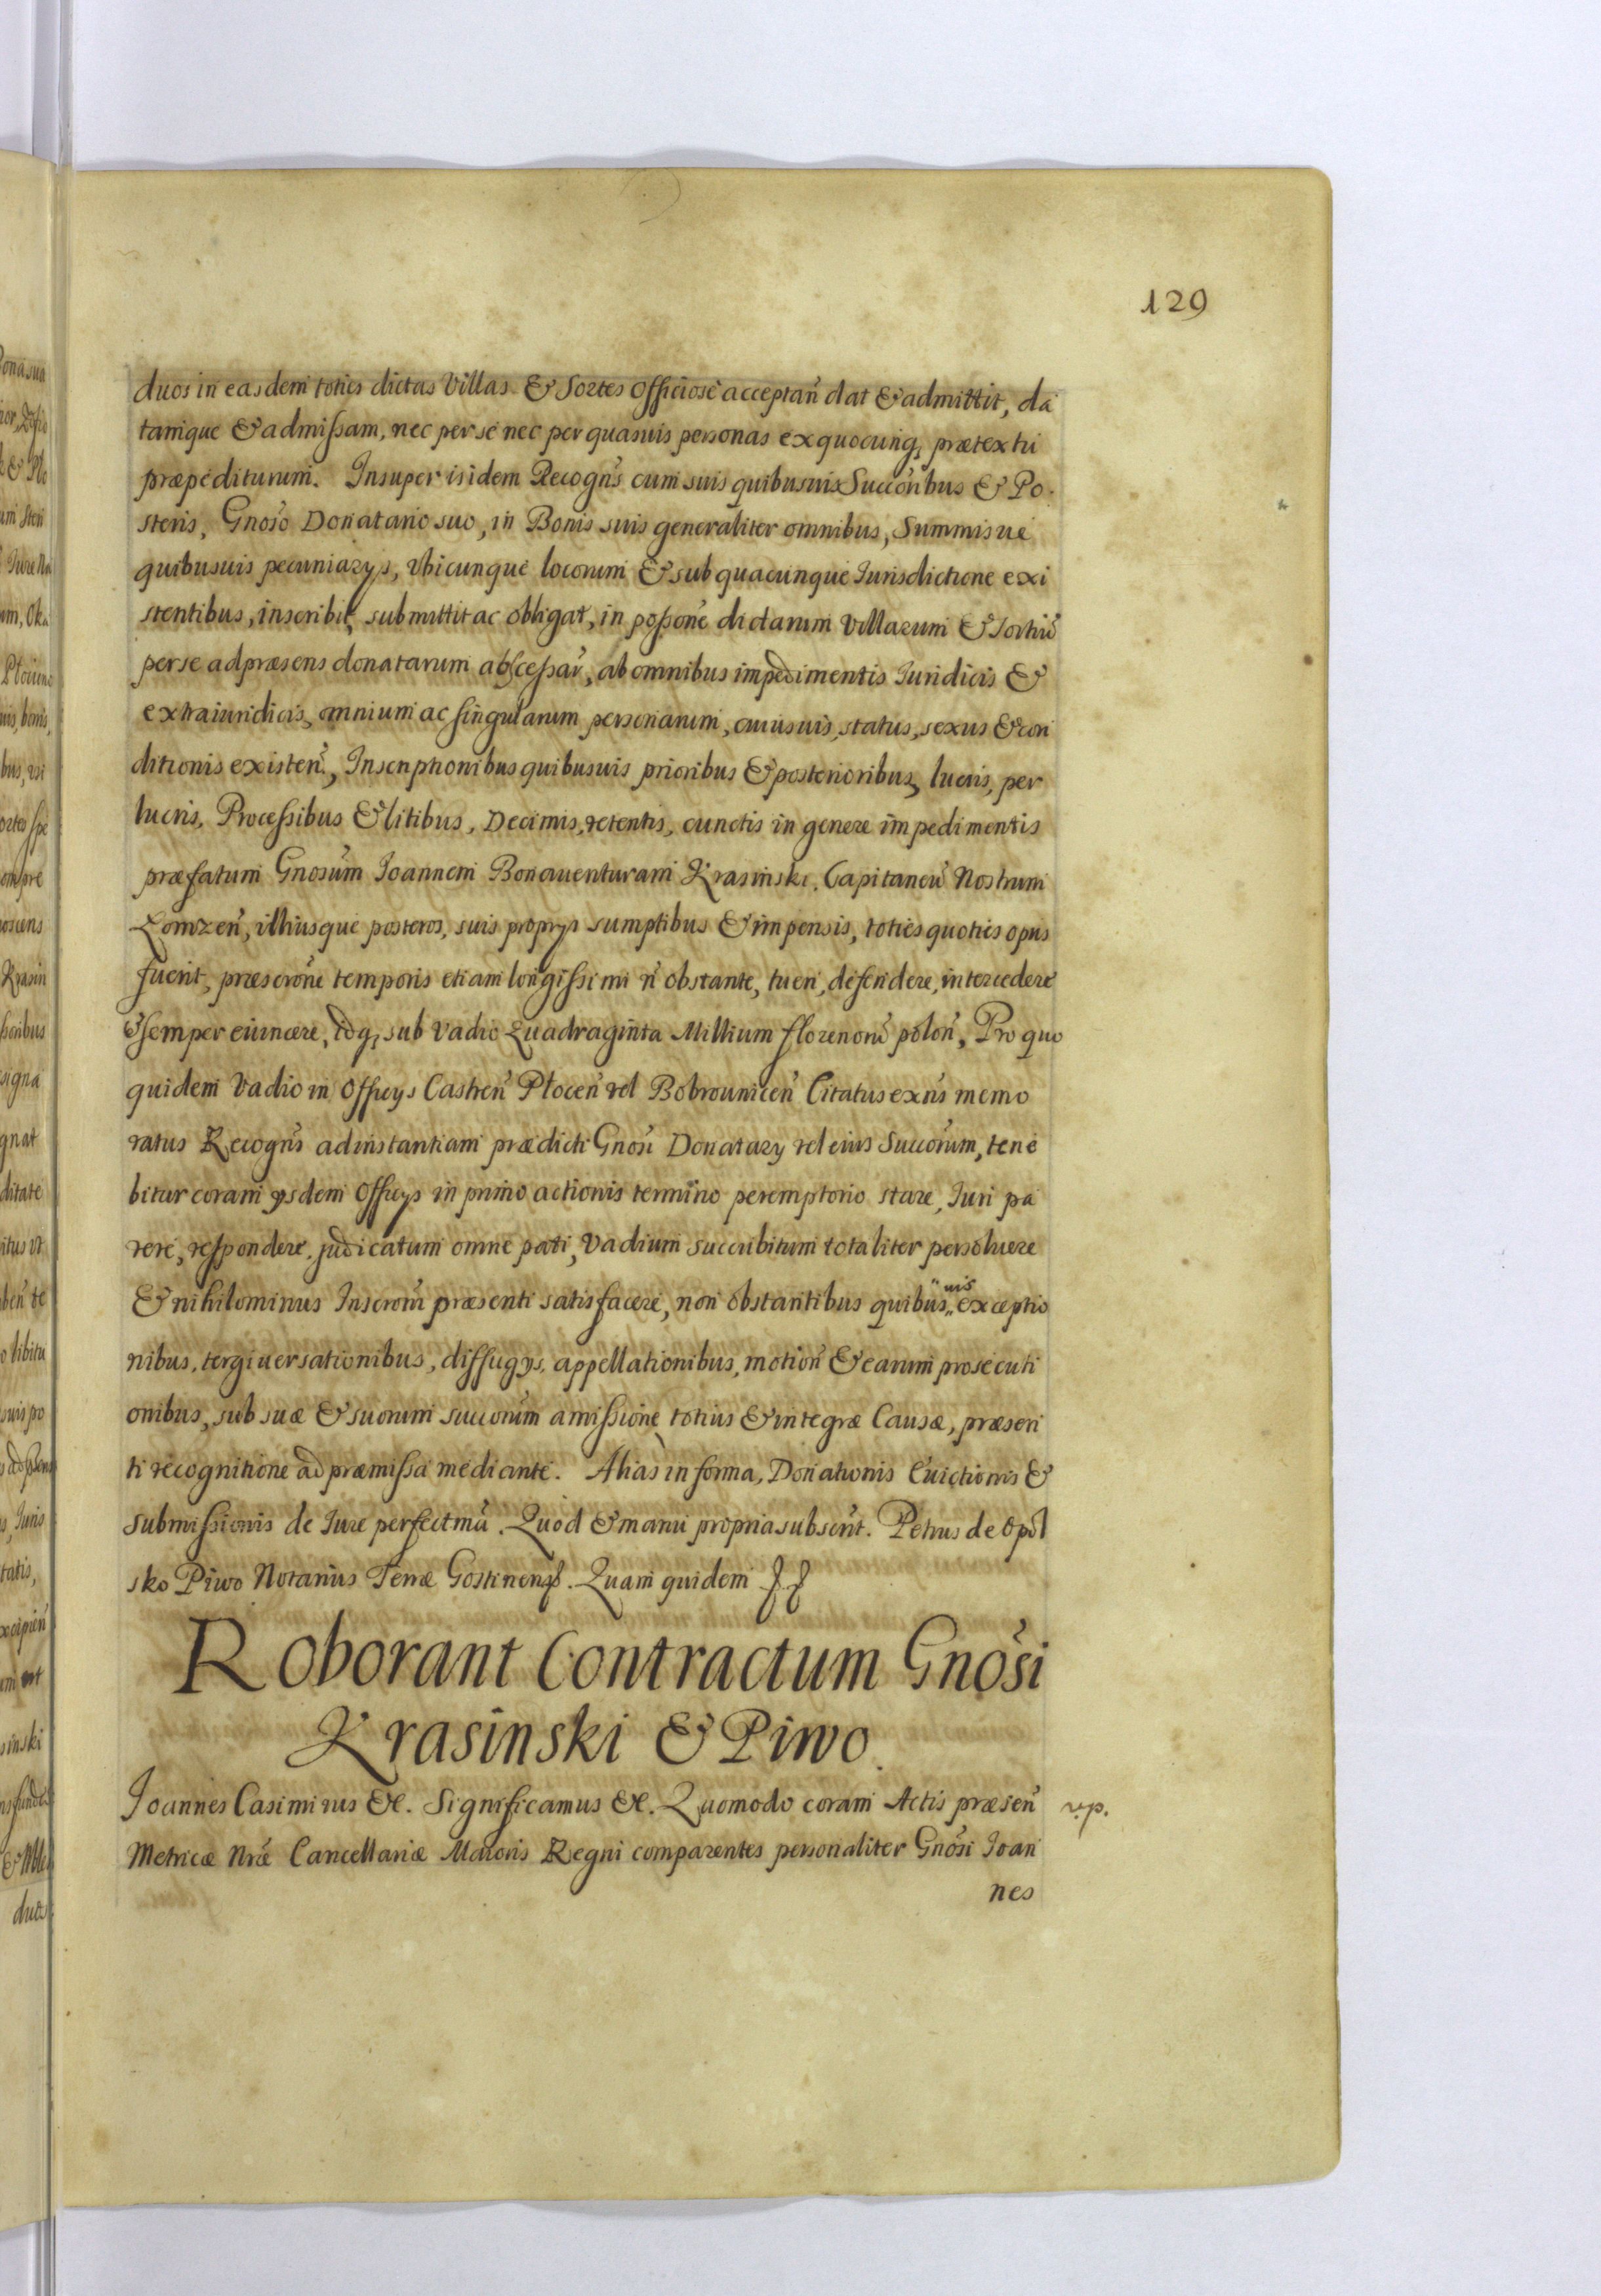 129
duos in easdem toties dictas Villas & Sortes officiose acceptañ dat & admittit, da
tamque & admissam, nec per se nec per quasuis personas ex quocunq₃ prætextu
præpediturum. Insuper isidem Recogñs cum suis quibusuis Succoribus & Po
steris, Gnoso Donatario suo, in Bonis suis generaliter omnibus, Summisue
quibusuis pecuniarys, Vbicunque locorum & sub quacunque Iurisdictione exi
stentibus, inscribit, submittit ac obligat, in poßone dictarum Villarum & Sortiũ
per se ad præsens donatarum abscessar̃, ab omnibus impedimentis Iuridicis &
extraiuridicis, omnium ac singularum personarum, cuiusuis, status, sexus & con
ditionis existeñ, Inscriptionibus quibusuis prioribus & posterioribus, lucris, per
lucris, Processibus & litibus, Decimis, retentis, cunctis in genere impedimentis
præfatum Gnosum Ioannem Bonauenturam Krasinski, Capitaneũ Nostrum
Łomzeñ, illiusque posteros, suis proprys sumptibus & impensis, toties quoties opus
fuerit, præscrone temporis etiam longissimi ñ obstante, tueri, defendere, intercedere
& semper euincere, idq₃ sub Vadio Quadraginta Millium florenorũ poloñ, Pro quo
quidem Vadio in Officys Castreñ Płoceñ vel Bobrouniceñ Citatus exñs memo
ratus Recogñs ad instantiam prædicti Gnosi Donatary vel eius Succorum, tene
bitur coram ysdem Officys in primo actionis termino peremptorio stare, Iuri pa
rere, respondere, judicatum omne pati, Vadium succubitum totaliter persoluere
& nihilominus Inscroni præsenti satisfacere, non obstantibus quibus uis exceptio
nibus, tergiuersationibus, diffugys, appellationibus, motioñ & earum prosecuti
onibus, sub suæ & suorum succorum amissione totius & integræ Causæ, præsen
ti recognitione ad præmissa mediante. Alias in forma, Donationis Euictionis &
submissionis de Iure perfectmã. Quod & manu propria subscrit. Petrus de Opol
sko Piwo Notarius Terræ Gostinens. Quam quidem
Roborant Contractum Gnosi
Krasinski & Piwo
Ioannes Casimirus &c. Significamus &c. Quomodo coram Actis præseñ v.p.
Metricæ Nræ Cancellariæ Maioris Regni comparentes personaliter Gnosi Ioan
nes